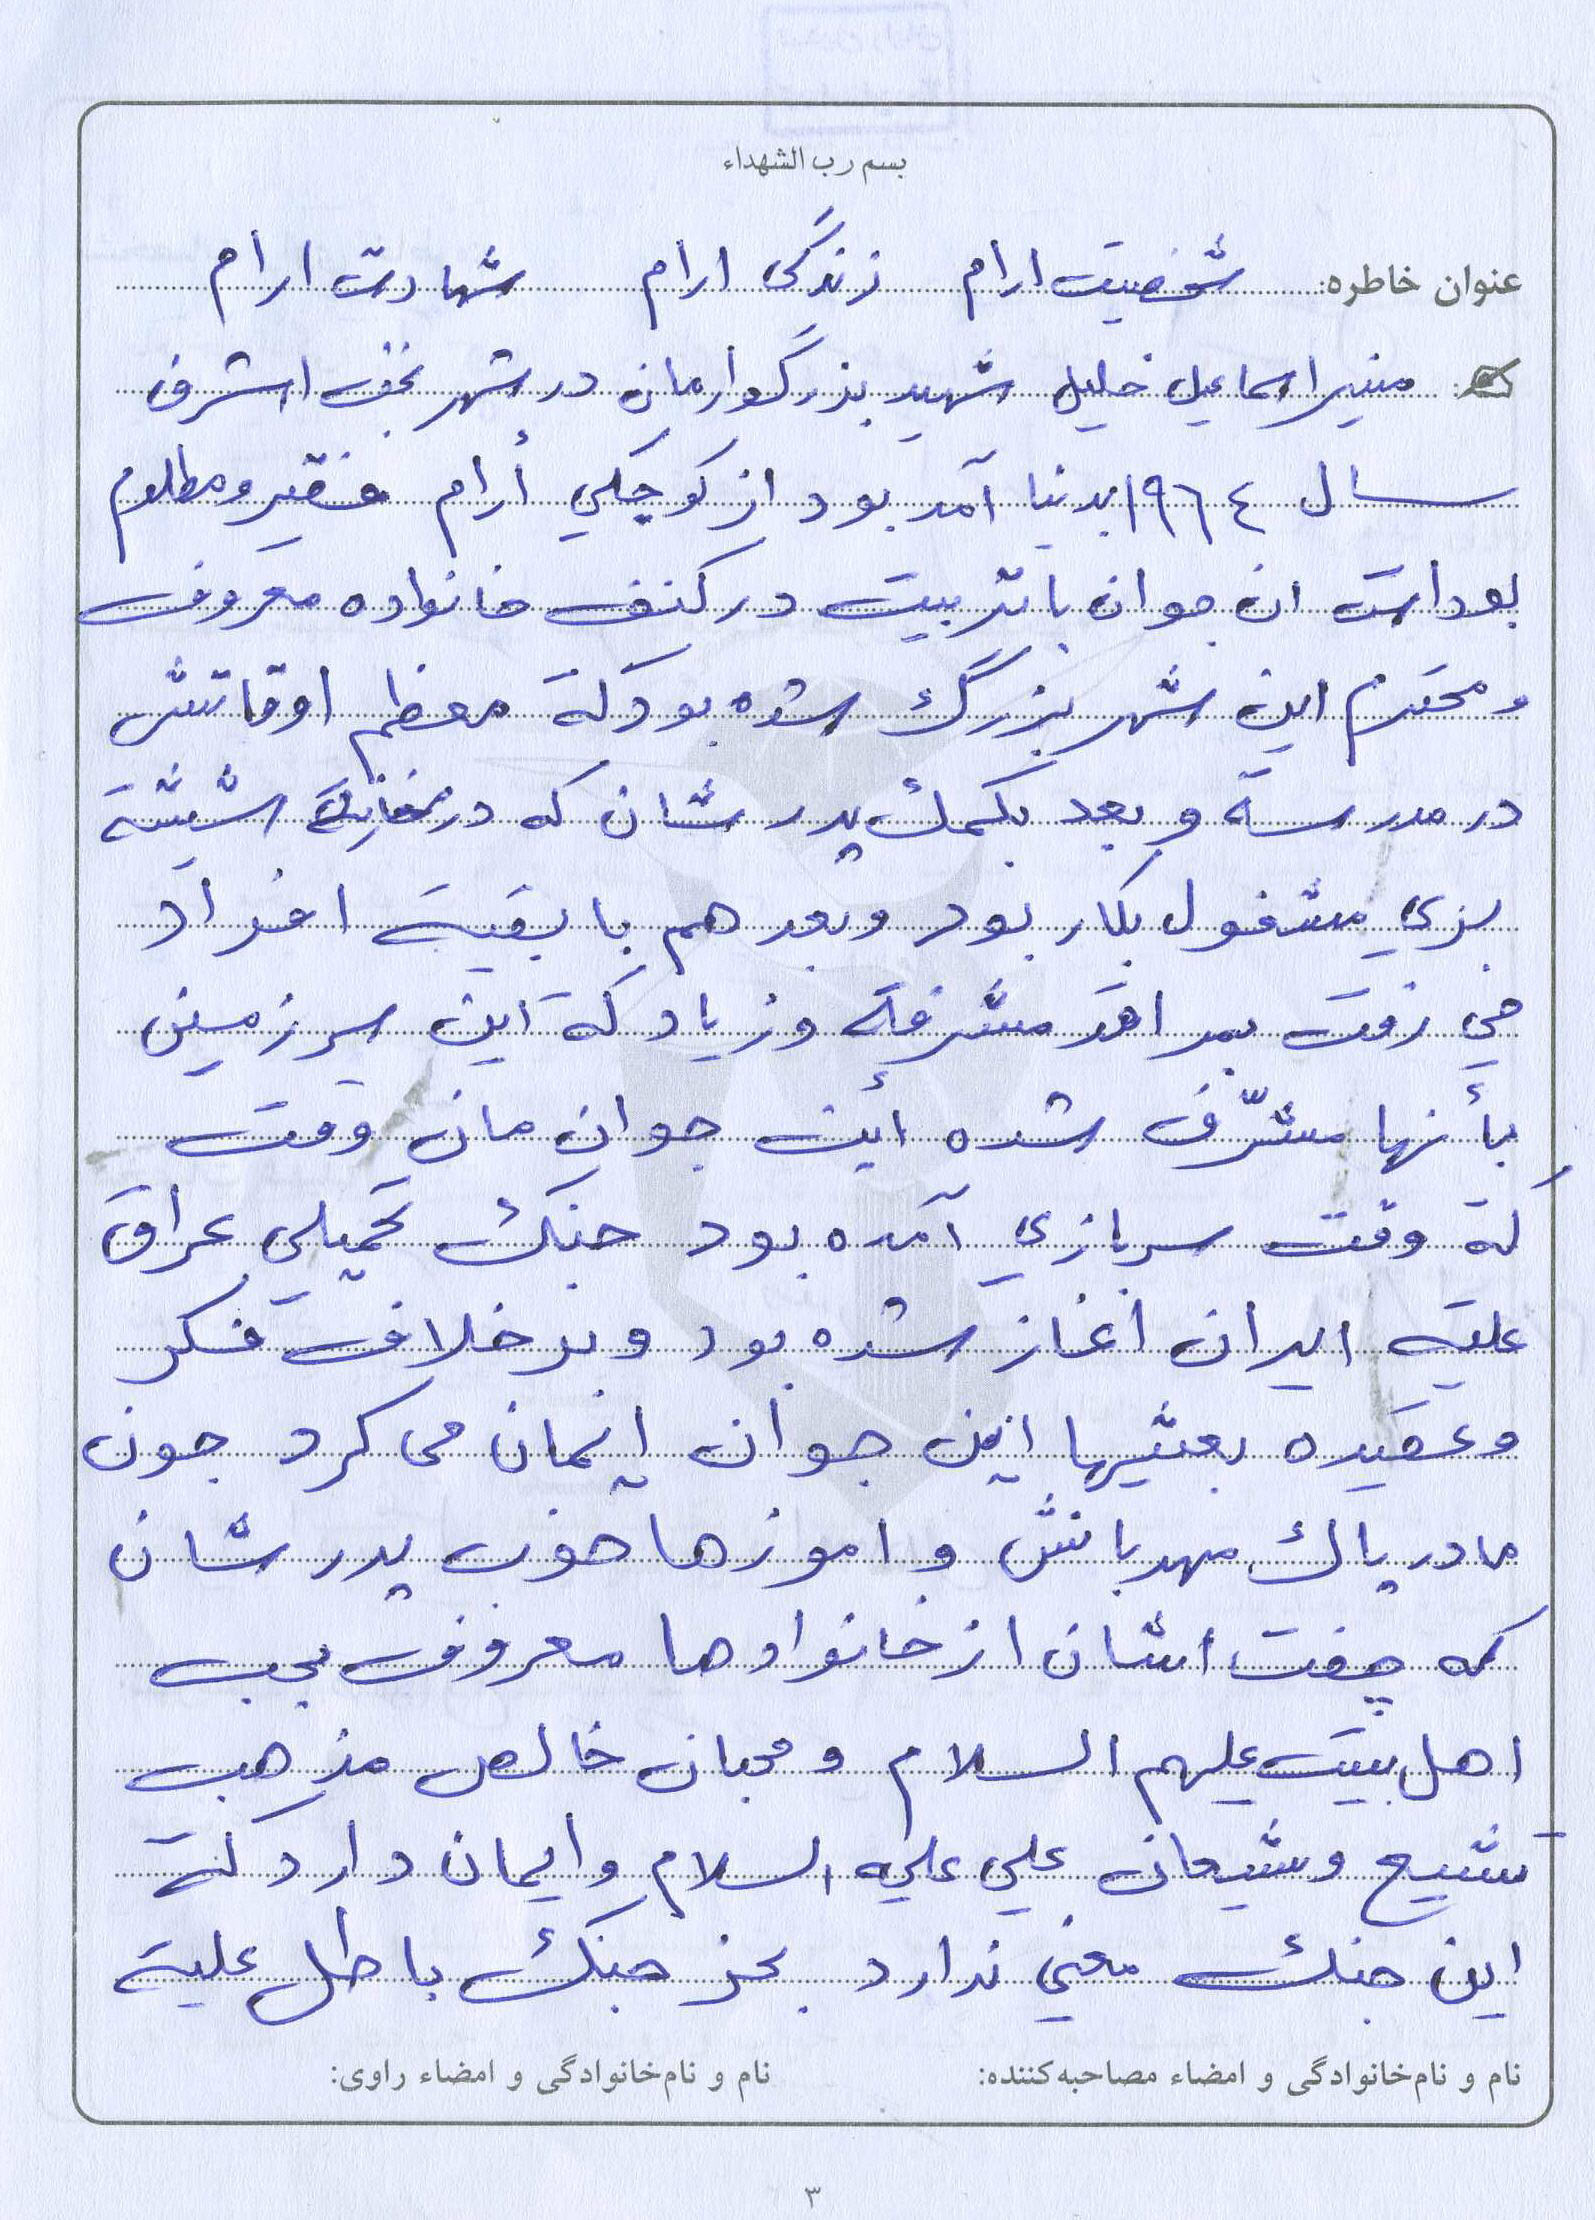 بسم رب الشهداء
عنوان خاطره: شخصیت ارام زندگی ارام شهادت ارام
منیر اسماعیل خلیل شهید بزرگوارمان در شهر نجف اشرف
سال ١٩٦٤ بدنیا آمد بود از کوچکي أرام فقیر و مظلوم
بود است ان جوان با تربیت در کنف خانواده معروف
و محترم این شهر بزرگ شده بود کة معظم اوقاتش
در مدرسة و بعد بکمک پدر شان که در مغازة شیشة
بزي مشغول بکار بود و بعد هم با بقیة افراد
مي رفت بمراقد مشرفة و زیاد کة این سرزمین
بأنها مشرّف شده أین جوان مان وقت
کة وقت سربازي آمده بود جنگ تحمیلي عراق
علیة ایران اغاز شده بود و بر خلاف فکر
و عقیده بعثیها این جوان إیمان می کرد جون
مادر پاک مهربانش و اموزها خوب پدر شان
که جفت اشان از خانوادها معروف بحب
اهل بیت علیهم السلام و محبان خالص مذهب
تشیع و شیعان علي علیه السلام و ایمان دارد کة
این جنگ معني ندارد بجز جنگ باطل علیة
نام و نام‌خانوادگی و امضاء مصاحبه‌کننده: نام و نام‌خانوادگی و امضاء راوی:
۳